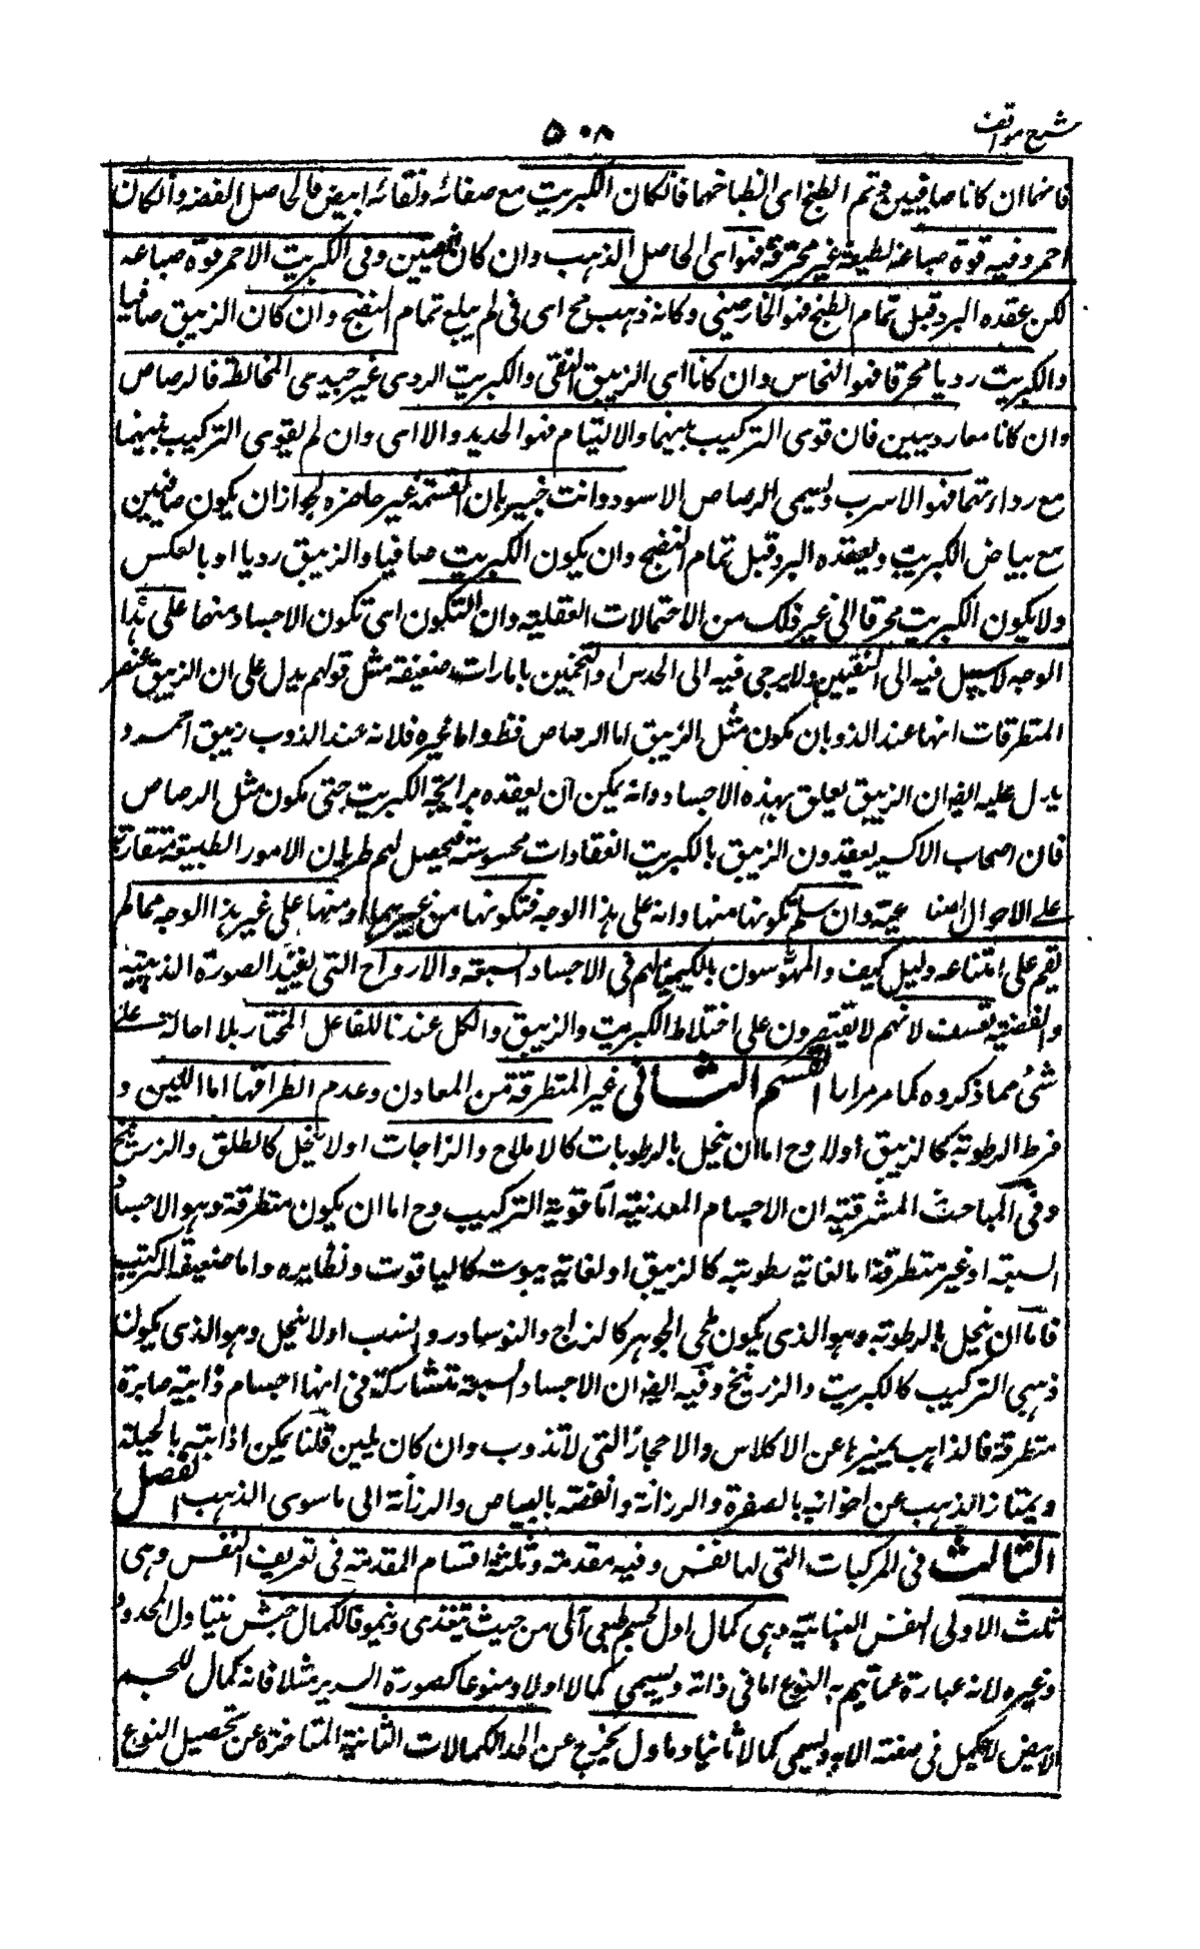 شرح مواقف
٥٠٨
فانهما ان كانا صافيين وتم الطبخ اى انطباخهما فانكان الكبريت مع صفائه ونقائه ابيض فالحاصل الفضه وانكان
احمر وفيه قوة صباغة لطيفة غير محترقة فهو اى الحاصل الذهب وان كان نقيين وفى الكبريت الاحمر قوة صباغه
لكن عقده البرد قبل تمام الطبخ فهو الخارصينى وكانه ذهب فج اى فى لم يبلغ تمام النضج وان كان الزيبق صافيا
والكبريت رديا محرقا فهو النحاس وان كانا اى الزيبق النقى والكبريت الردى غير جيدى المخالطة فالرصاص
وان كانا معا رديين فان قوى التركيب بينهما والالتيام فهو الحديد والا اى وان لم يقوى التركيب بينهما
مع رداءتهما فهو الاسرب ويسمى الرصاص الاسود وانت خبير بان القسمة غير حاضره لجواز ان يكون صافيين
مع بياض الكبريت ويعقده البرد قبل تمام النضج وان يكون الكبريت صافيا والزيبق رديا او بالعكس
ولا يكون الكبريت محرقا الى غير ذلك من الاحتمالات العقليه وان التكون اى تكون الاجساد منها على هذا
الوجه لا سبيل فيه الى اليقين ولا يرجى فيه الى الحدس والتخمين بامارات ضعيفة مثل قولهم يدل على ان الزيبق عنصر
المتطرقات انها عند الذوبان تكون مثل الزيبق اما الرصاص فظ واما غيره فلانه عند الذوب زيبق احمر و
يدل عليه ايضا ان الزيبق يعلق بهذه الاجساد وانه يمكن ان يعقده برايحة الكبريت حتى يكون مثل الرصاص
فان اصحاب الاكسير يعقدون الزيبق بالكبريت انعقادات محسوسة فيحصل لهم ظن بان الامور الطبيعة مقارنة
على الاحوال الصناعية وان سلم تكونها منها وانه على هذا الوجه فتكونها من غيرهما او منهما على غير هذا الوجه مما لم
يقم على امتناعه دليل كيف والمهوسون بالكيميا لهم فى الاجساد السبعه والارواح التى تفيد الصورة الذهبية
والفضية تعسف لانهم لا يقتصرون على اختلاط الكبريت والزيبق والكل عندنا للفاعل المختار بلا احالة على
شئ مما ذكروه كما مر مرارا القسم الثانى غير المتطرقة من المعادن وعدم انطراقها اما اللين و
فرط الرطوبة كالزيبق اولا وح اما ان ينحل بالرطوبات كالاملاح والزاجات اولا ينحل كالطلق والزرنيخ
وفى المباحث المشرقية ان الاجسام المعدنية اما قوية التركيب وح اما ان يكون متطرقة وهو الاجساد
السبعه او غير متطرقة اما لغاية رطوبته كالزيبق او لغاية يبوسته كالياقوت ونظايره واما ضعيفة التركيب
فاما ان ينحل بالرطوبة وهو الذى يكون ملحى الجوهر كالزاج والنوشادر والشب اولا ينحل وهو الذى يكون
دهنى التركيب كالكبريت والزرنيخ وفيه ايضا ان الاجساد السبعه متشاركة فى انها اجسام ذائبة صابرة
متطرقة فالذايب يميزها عن الاكلاس والاحجار التى لا تذوب وان كان يلين قلنا يمكن اذابته بالحيلة
ويمتاز الذهب عن اخواته بالصفرة والرزانة والفضه بالبياض والرزانة الى ما سوى الذهب الفصل
الثالث فى المركبات التى لها نفس وفيه مقدمة وثلثة اقسام المقدمة فى تعريف النفس وهى
ثلث الاولى النفس النباتية وهى كمال اول لجسم طبعى آلى من حيث يتغذى وينمو فالكمال جنس يتناول المحدود
وغيره لانه عبارة عما يتم به النوع اما فى ذاته ويسمى كمالا اولا ومنوعا كصورة السرير مثلا فانه كمال للجسم
الابيض لا يكمل فى صفته الا به ويسمى كمالا ثانيا وما ول يخرج عن الحد الكمالات الثانية المتاخرة عن تحصيل النوع